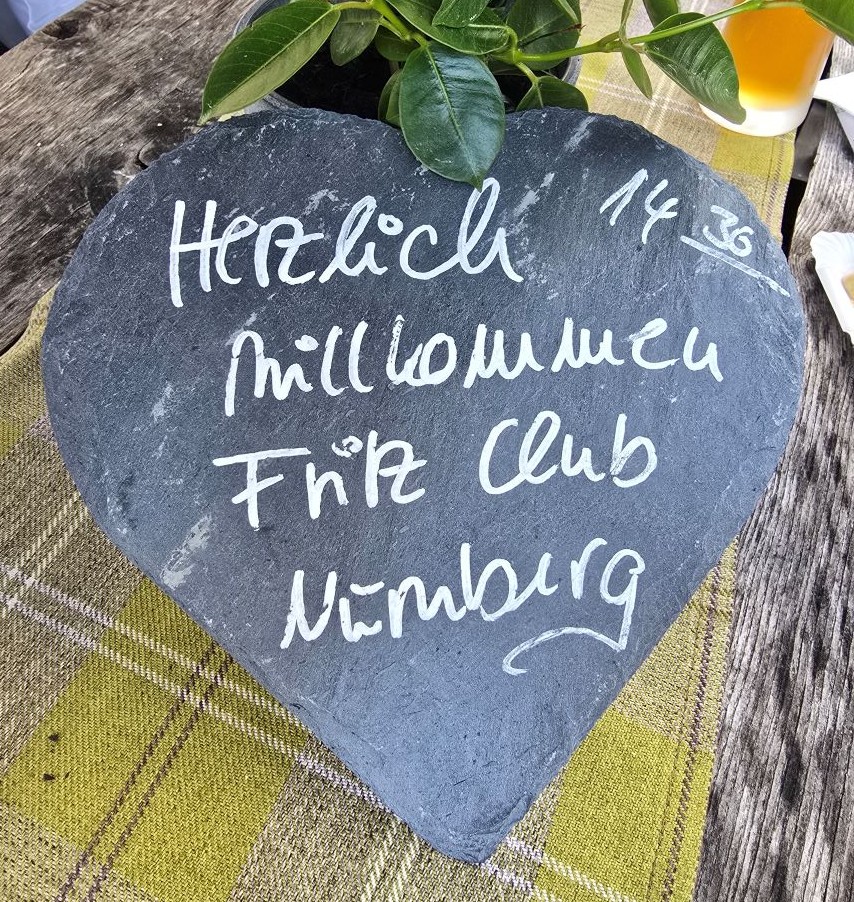 Herzlich 14 30
Willkommen
Fritz Club
Nürnberg